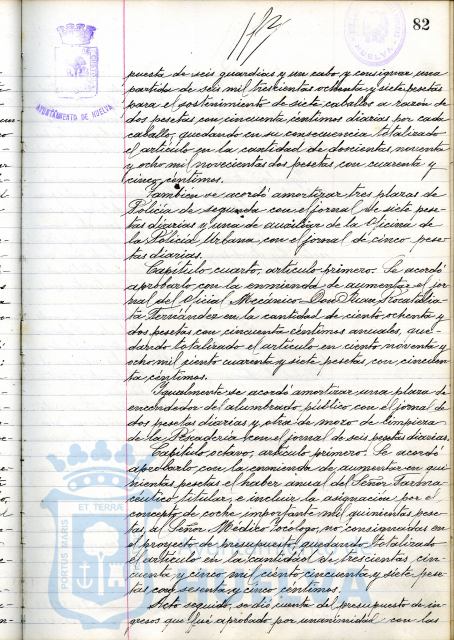 82
AYUNTAMIENTO DE HUELVA
puesta de seis guardias y un cabo y consignar una
partida de seis mil trescientas ochenta y siete pesetas
para el sostenimiento de siete caballos a razón de
dos pesetas con cincuenta céntimos diarias por cada
caballo, quedando en su consecuencia totalizado
el artículo en la cantidad de doscientas noventa
y ocho mil novecientas dos pesetas con cuarenta y
cinco céntimos.
También se acordó amortizar tres plazas de
Policía de segunda con el jornal de siete pese-
tas diarias y una de auxiliar de la Oficina de
la Policía Urbana con el jornal de cinco pese-
tas diarias.
Capítulo cuarto, artículo primero. Se acordó
aprobarlo con la enmienda de aumentar el jor-
nal del Oficial Mecánico Don Juan
Fernández en la cantidad de ciento ochenta y
dos pesetas con cincuenta céntimos anuales, que-
dando totalizado el artículo en ciento noventa y
ocho mil ciento cuarenta y siete pesetas, con cincuen-
ta céntimos.
Igualmente se acordó amortizar una plaza de
encendedor del alumbrado público con el jornal de
dos pesetas diarias y otra de mozo de limpieza
de la Pescadería con el jornal de seis pesetas diarias.
Capítulo octavo, artículo primero. Se acordó
aprobarlo con la enmienda de aumentar en qui-
nientas pesetas el haber anual del Señor Farma-
céutico titular, e incluir la asignación por el
concepto de coche importante mil quinientas pese-
tas al Señor Médico Tocólogo, no consignadas en
el proyecto de presupuesto quedando totalizado
el artículo en la cantidad de trescientas cin-
cuenta y cinco mil ciento cincuenta y siete pese-
tas con sesenta y cinco céntimos.
Acto seguido, se dió cuenta del presupuesto de in-
gresos que fué aprobado por unanimidad con las
PORTUS MARIS ET TERRA
Ayuntamiento de
HUELVA